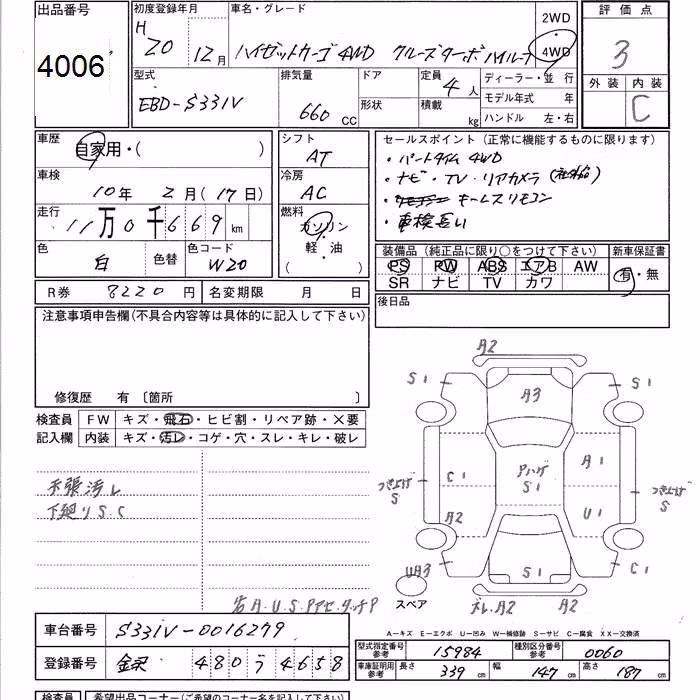 出品番号
4006
初度登録年月
H 20 12月
車名・グレード
ハイゼットカーゴ 4WD クルーズターボ ハイルーフ
2WD
・
4WD
評価点
3
外装 内装
C
型式
EBD-S331V
排気量
660 CC
ドア
形状
定員
4人
積載
kg
ディーラー・並行
モデル年式 年
ハンドル 左・右
車歴
自家用・( )
車検
10年 2月(17日)
走行
11万0千669km
色
白
色替
色コード
W20
シフト
AT
冷房
AC
燃料
ガソリン
・
軽・油
( )
セールスポイント(正常に機能するものに限ります)
・パートタイム4WD
・ナビ・TV・リアカメラ(社外品)
・キーレスリモコン
・車検長い
装備品(純正品に限り○をつけて下さい)
PS PW ABS エアB AW
SR ナビ TV カワ
新車保証書
有・無
R券 8220円
名変期限 月 日
後日品
注意事項申告欄(不具合内容等は具体的に記入して下さい)
修復歴 有〔箇所 〕
検査員
記入欄
FW キズ・飛石・ヒビ割・リペア跡・×要
内装 キズ・汚レ・コゲ・穴・スレ・キレ・破レ
天張汚レ
下廻りS.C
A2
S1
A3
S1
C1
アハゲ
S1
A1
つき上げ
S
つき上げ
S
A2
U1
UA3
S1
C1
スペア
ズレ.A2
A2
A-キズ E-エクボ U-凹み W-補修跡 S-サビ C-腐食 XX-交換済
車台番号
S331V-0016279
登録番号
480 う 4658
型式指定番号
参考
15984
種別区分番号
参考
0060
車庫証明用
参考
長さ
339 cm
幅
147 cm
高さ
187 cm
検査員
希望出品コーナー(ご希望のコーナー名を記入して下さい)